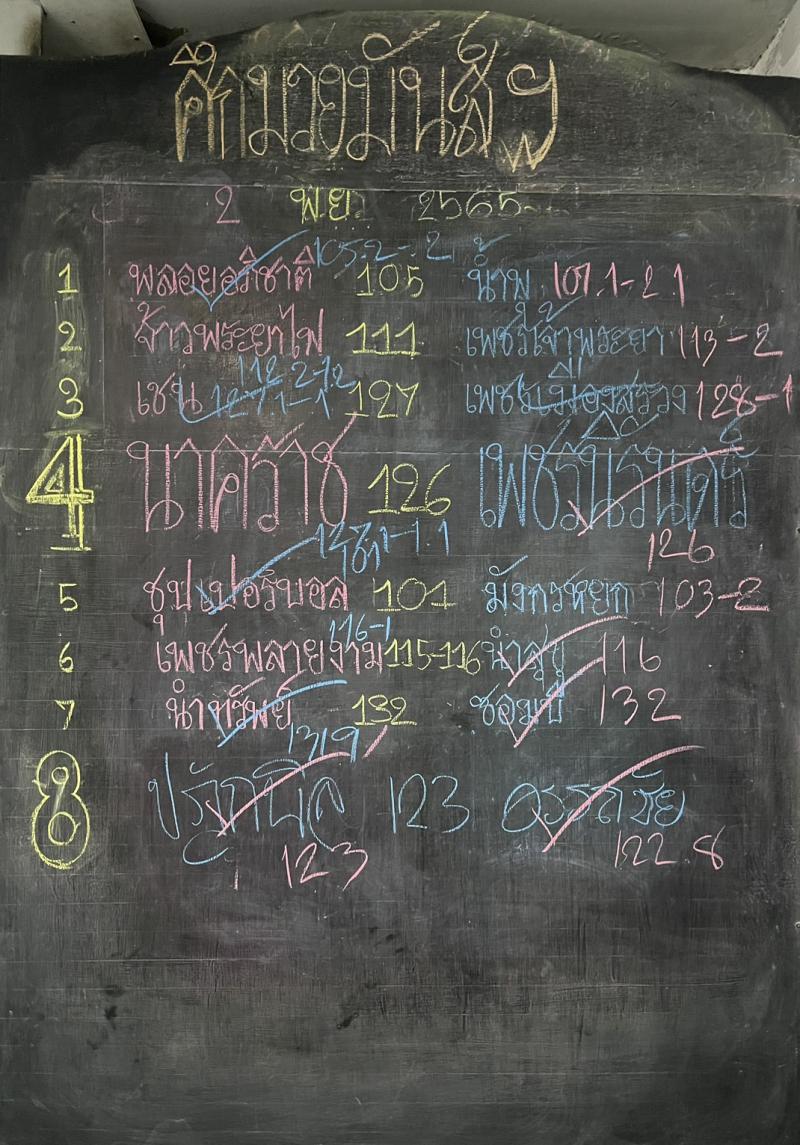 ศึกมวยมันส์ฯ
2 พ.ย. 2565
1 พลอยอภิชาติ 105 น้ำพ 107.1-2.1
105.2-.2
2 จ้าวพระยาไฟ 111 เพชรเจ้าพระยา 113-2
112.2-1.2
3 เชน 127 เพชรเมืองสรวง 128-1
127.1-1
4 นาคราช 126 เพชรนรินทร์
126
5 ซุปเปอร์บอล 101 มังกรหยก 103-2
116-1
6 เพชรพลายงาม 115-116 116
7 นำทรัพย์ 132 ซอมบี้ 132
131.9
8 123 อรรถชัย
123 122.8